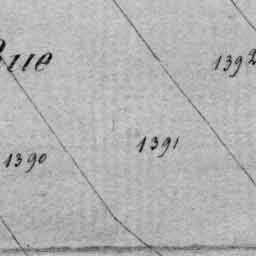 Rue
1392
1391
1390